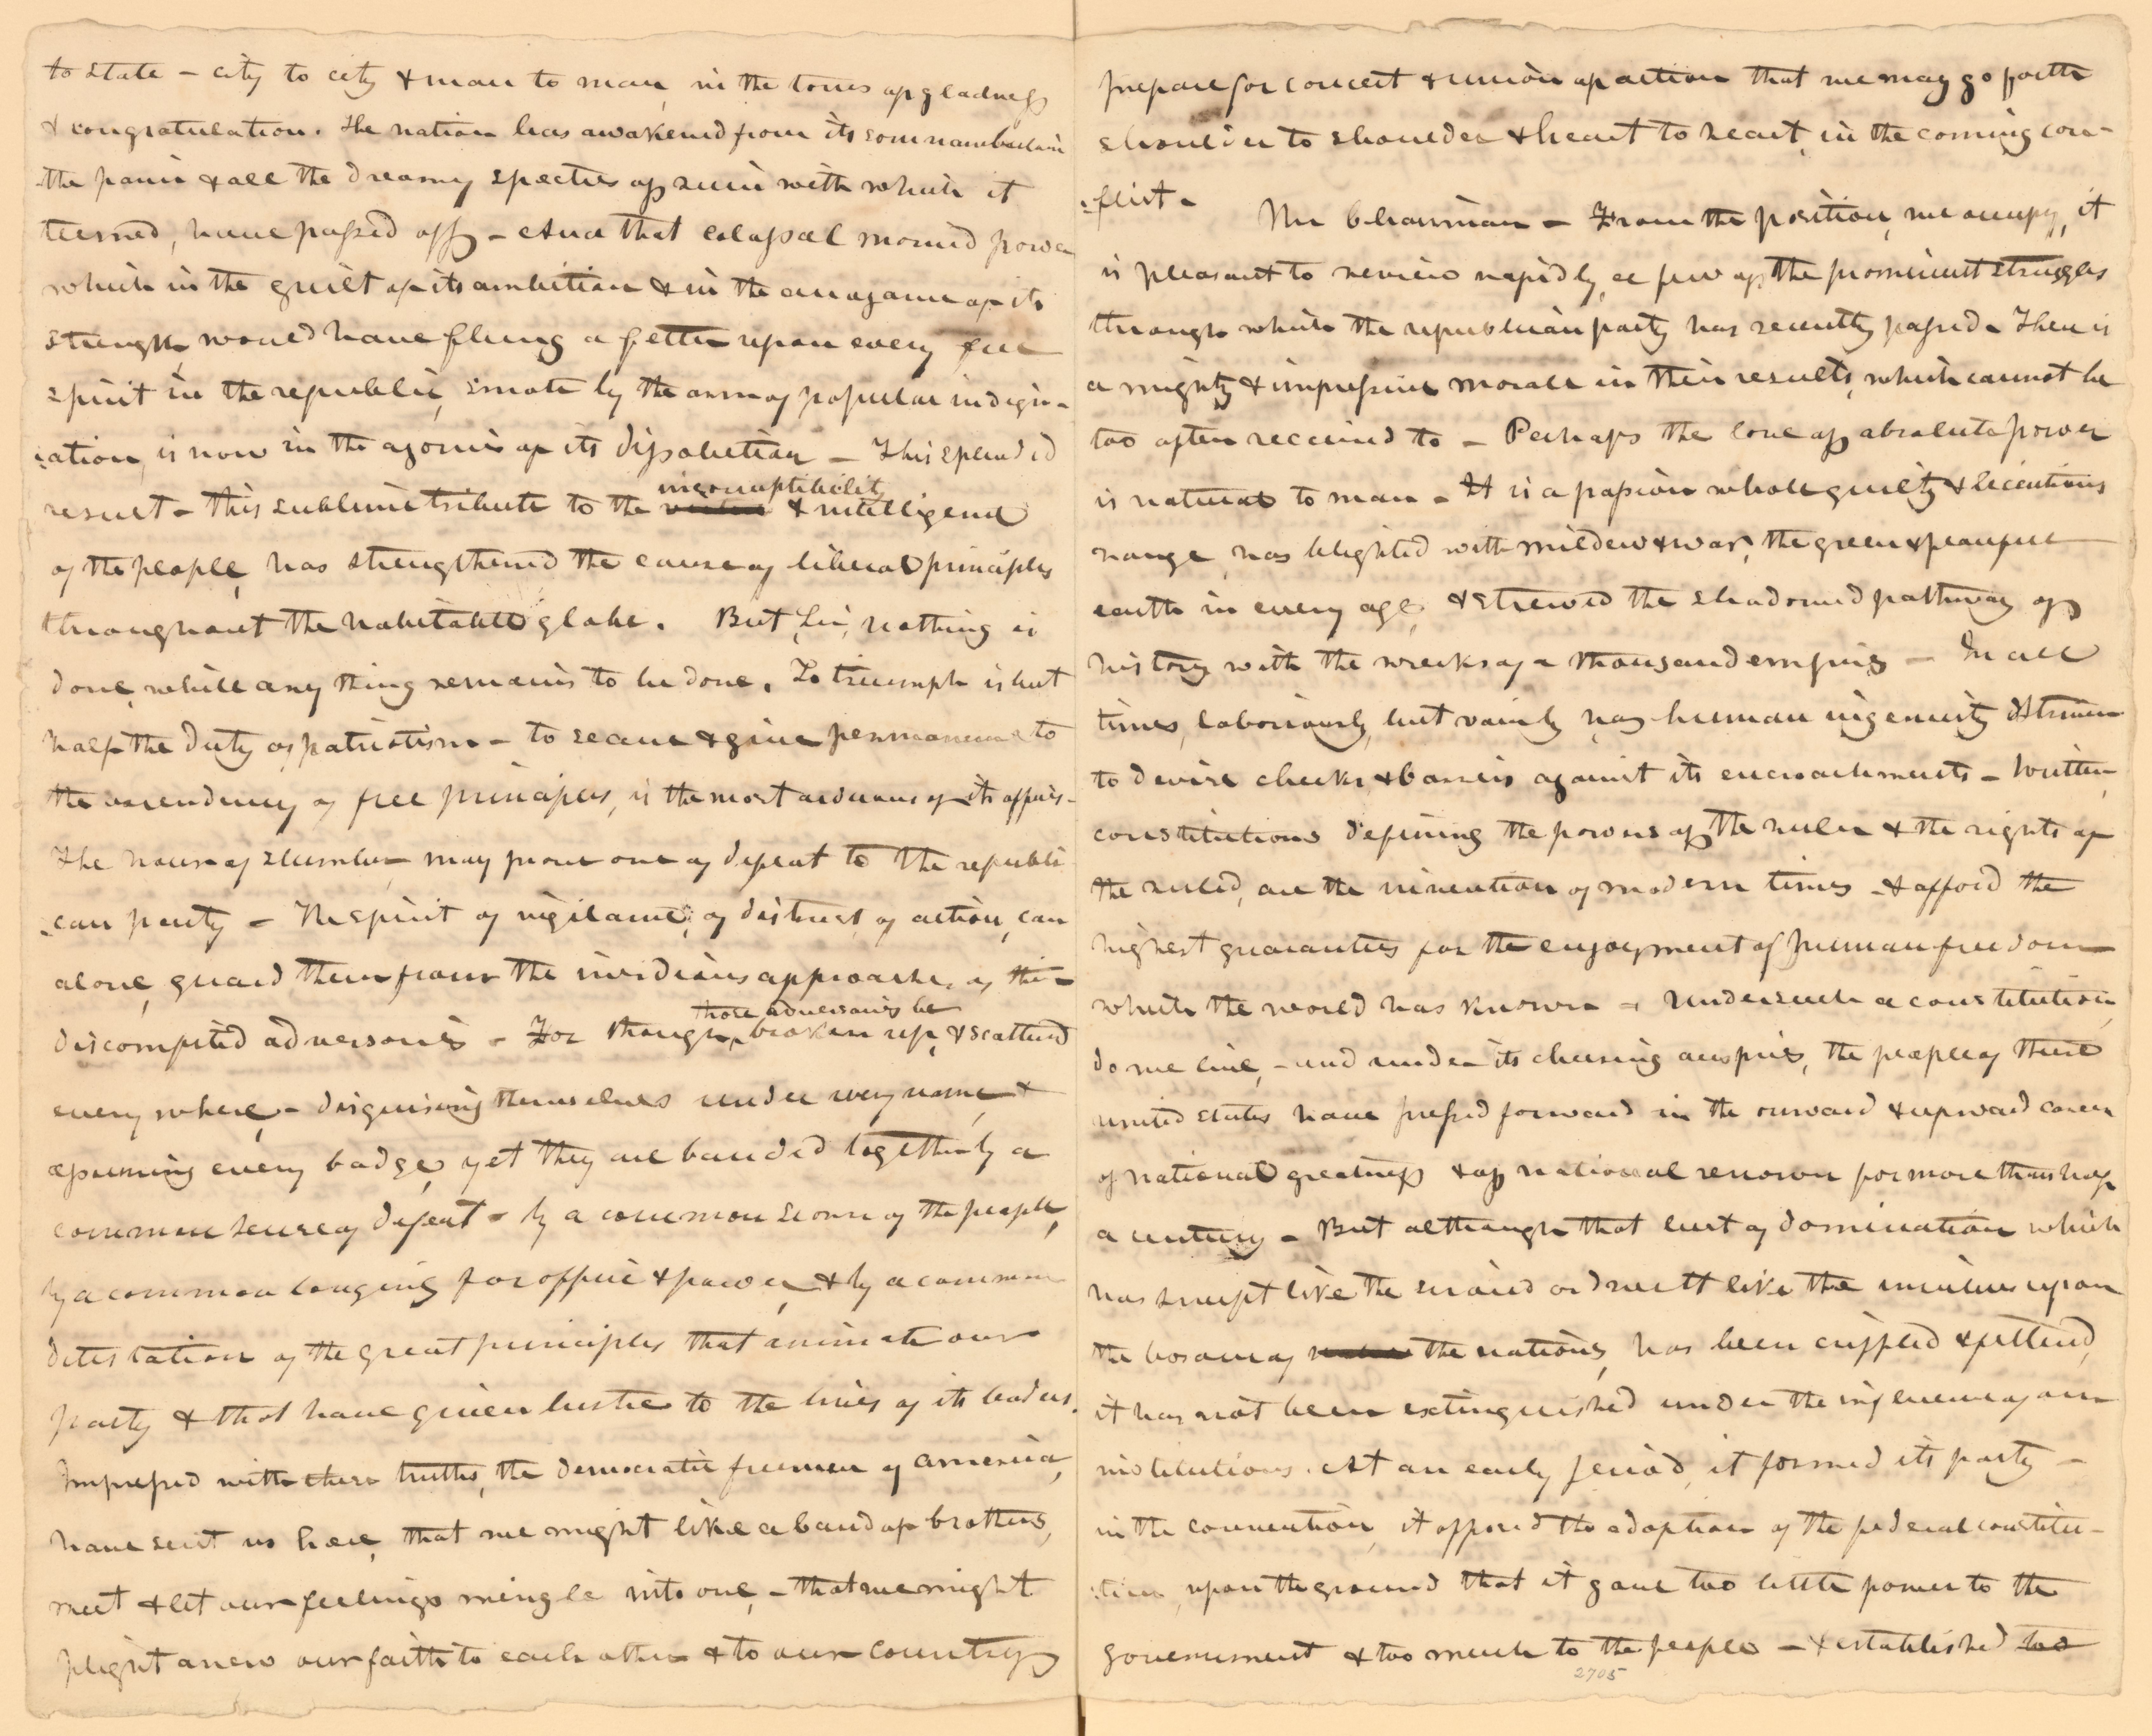 to state – city to city & man to man, in the tones of gladness
& congratulation. The nation has awakened from its somnambulism
the panic & all the dreamy spectres of ruin with which it
teemed, have passed off – And that colossal monied power
which in the guilt of its ambition & in the arrogance of its
strength, would have flung a fetter upon every free
spirit in the republic, smote by the arm of popular indign-
-ation, is now in the agonies of its dissolution – This splendid
result – this sublime tribute to the incorruptibility & intelligence
of the people, has strengthened the cause of liberal principles
throughout the habitable globe. But Sir, nothing is
done, while any thing remains to be done. To triumph is but
half the duty of patriotism – to secure & give permanence to
the ascendency of free principles, is the most arduous of its offices –
The hour of slumber may prove one of defeat to the republi
-can party – The spirit of vigilance, of distrust, of action, can
alone, guard them from the insidious approaches of their
discomfited adversaries – For though those adversaries be broken up, & scattered
every where, – disguising themselves under every name, &
assuming every badge, yet they are banded together by a
common sense of defeat – by a common scorn of the people,
by a common longing for office & power, & by a common
detestation of the great principles that animate our
party & that have given lustre to the lives of its leaders.
Impressed with these truths, the democratic freemen of America,
have sent us here, that we might like a band of brothers,
meet & let our feelings mingle into one, – that we might
plight anew our faith to each other & to our country,
prepare for concert & union of action that we may go forth
shoulder to shoulder & heart to heart, in the coming con-
-flict –
Mr Chairman – From the position, we occupy, it
is pleasant to review rapidly, a few of the prominent struggles
through which the republican party has recently passed – There is
a mighty & impressive morale in their results, which cannot be
too often recurred to – Perhaps the love of absolute power
is natural to man – It is a passion whose guilty & licentious
range, has blighted with mildew & war, the green & peaceful
earth in every age, & strewed the shadowed pathway of
history with the wrecks of a thousand empires – In all
times, laboriously, but vainly has human ingenuity striven
to devise checks & barriers against its encroachments – Written,
constitutions defining the powers of the ruler & the rights of
the ruled, are the invention of modern times – & afford the
highest guaranties for the enjoyment of human freedom
which the world has known – Under such a constitution,
do we live, – and under its cheering auspices, the people of these
united states have pressed forward in the onward & upward career
of national greatness & of national renown for more than half
a century – But although that lust of domination which
has swept like the or dwelt like the incubus upon
the bosom of the nations, has been crippled & fettered,
it has not been extinguished under the influence of our
institutions. At an early period, it formed its party –
in the convention, it opposed the adoption of the federal constitu-
-tion, upon the ground that it gave too little power to the
government & too much to the people – & established
2705